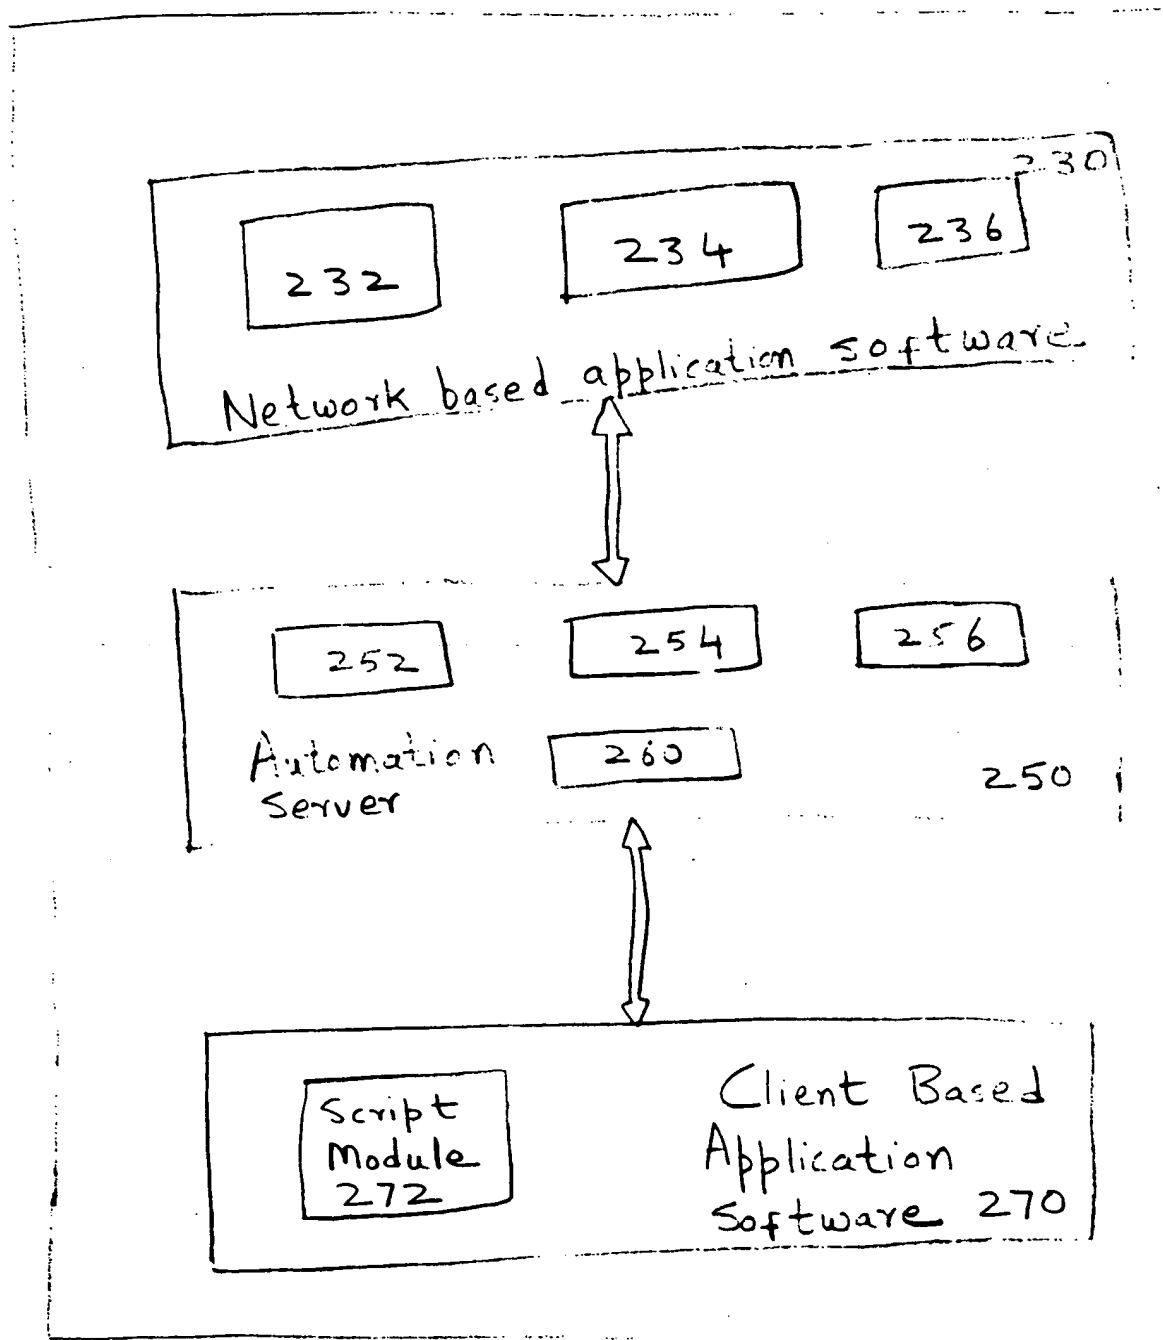 230
232
234
236
Network based application software
252
254
256
Automation
Server
260
250
Script
Module
272
Client Based
Application
Software 270